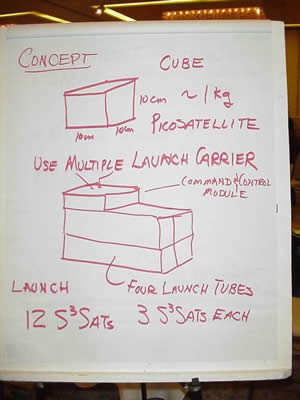 CONCEPT CUBE
10cm ~1kg
10cm 10cm PICOSATELLITE
USE MULTIPLE LAUNCH CARRIER
COMMAND & CONTROL
MODULE
LAUNCH FOUR LAUNCH TUBES
12 S³SATS 3 S³SATS EACH